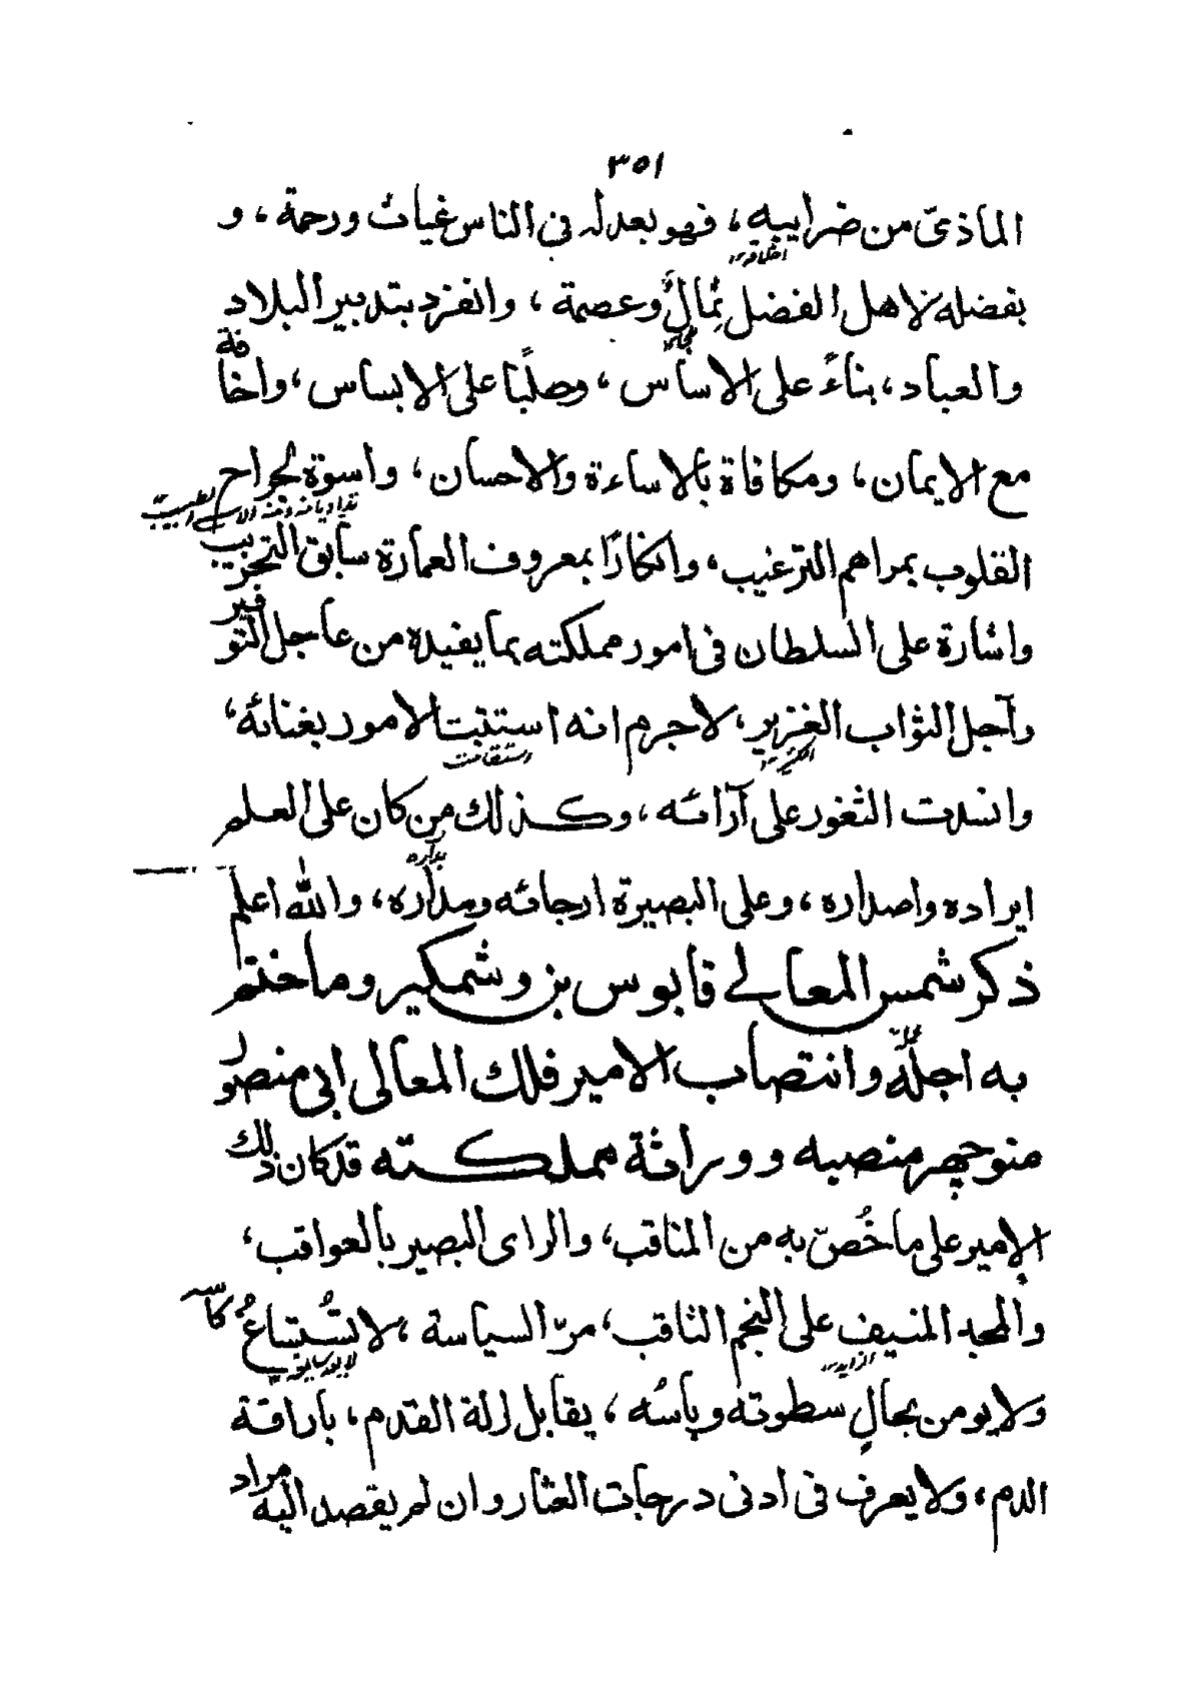 ٣٥١
الماذىّ من ضرايبه، فهو بعدله فى الناس غياث ورحمة، و
اخلاقه
بفضله لاهل الفضل ثِمالٌ وعصمة، وانفرد بتدبير البلاد
والعباد، بناءً على الاساس، وحلبًا على الابساس، واخافة
مع الايمان، ومكافاة بالاساءة والاحسان، واسوة لجراح
القلوب بمراهم الترغيب، وانكارًا بمعروف العمارة سابق التخريب
واشارة على السلطان فى امور مملكته بما يفيده من عاجل التوفير
وآجل الثواب الغزير، لاجرم انه استتبت الامور بغنائه،
الكثير
استقامت
وانسدت الثغور على آرائه، وكذلك من كان على العلم
ايراده واصداره، وعلى البصيرة ارجائه وبداره، والله اعلم
ذكر شمس المعالى قابوس بن وشمكير وما ختم
به اجله وانتصاب الامير فلك المعالى ابى منصور
منوچهر منصبه ووراثة مملكته قد كان ذلك
الامير على ما خُصّ به من المناقب، والراى البصير بالعواقب،
والمجد المنيف على النجم الثاقب، مرّ السياسة، لا تُستساغُ كاسه
الزايد
ولا يومن بحالٍ سطوته وبأسُه، يقابل زلة القدم، باراقة
الدم، ولا يعرف فى ادنى درجات العثار وان لم يقصد اليه مراد